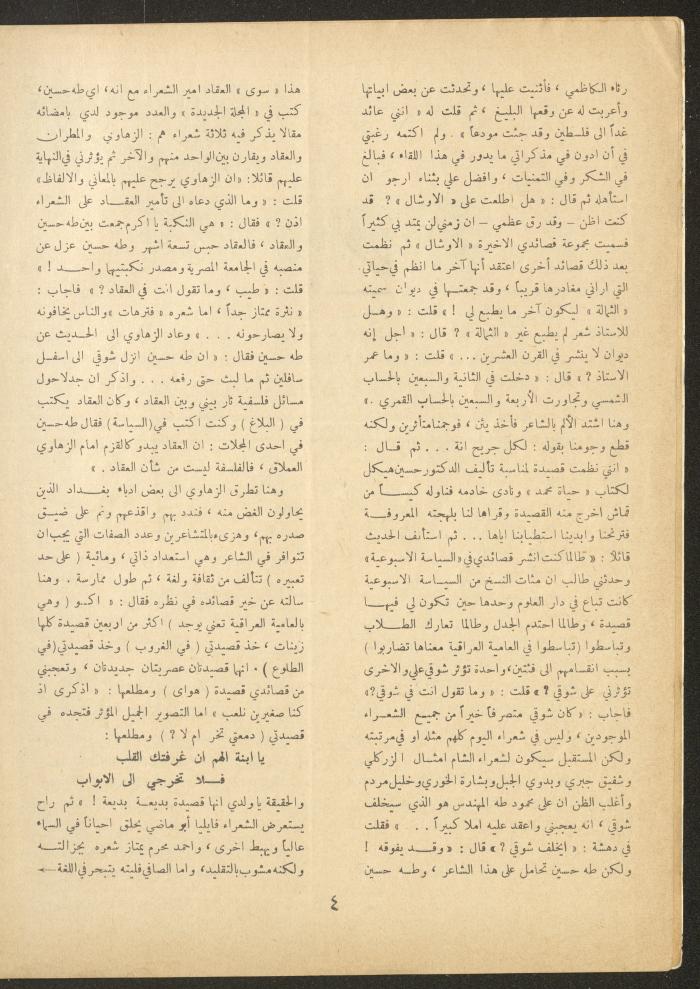 رثاء الكاظمي ، فأثنيت عليها ، وتحدثت عن بعض ابياتها
وأعربت له عن وقعها البليغ ، ثم قلت له « انني عائد
غداً الى فلسطين وقد جئت مودعاً » . ولم اكتمه رغبتي
في أن ادون في مذكراتي ما يدور في هذا اللقاء ، فبالغ
في الشكر وفي التمنيات ، وافضل علي بثناء ارجو ان
استأهله ثم قال : « هل اطلعت على « الاوشال » ? قد
كنت اظن – وقد رق عظمي – ان زمني لن يمتد بي كثيراً
فسميت مجموعة قصائدي الاخيرة « الاوشال » ثم نظمت
بعد ذلك قصائد أخرى اعتقد أنها آخر ما انظم في حياتي
التي اراني مغادرها قريباً ، وقد جمعتها في ديوان سميته
« الثمالة » ليكون آخر ما يطبع لي ! » قلت : « وهل
للاستاذ شعر لم يطبع غير « الثمالة » ? قال : « اجل إنه
ديوان لا ينشر في القرن العشرين ... » قلت : « وما عمر
الاستاذ ? » قال : « دخلت في الثانية والسبعين بالحساب
الشمسي وتجاوزت الأربعة والسبعين بالحساب القمري .»
وهنا اشتد الألم بالشاعر فأخذ يئن ، فوجمنا متأثرين ولكنه
قطع وجومنا بقوله : لكل جريح انة . . . ثم قال :
« انني نظمت قصيدة لمناسبة تأليف الدكتور حسين هيكل
لكتاب « حياة محمد » ونادى خادمه فناوله كيساً من
قماش اخرج منه القصيدة وقراها لنا بلهجته المعروفة
فترنحنا وابدينا استطيابنا اياها ... ثم استأنف الحديث
قائلا : « طالما كنت انشر قصائدي في «السياسة الاسبوعية»
وحدثني طالب ان مئات النسخ من السياسة الاسبوعية
كانت تباع في دار العلوم وحدها حين تكون لي فيها
قصيدة ، وطالما احتدم الجدل وطالما تعارك الطلاب
وتباسطوا ( تباسطوا في العامية العراقية معناها تضاربوا )
بسبب انقسامهم الى فئتين، واحدة تؤثر شوقي علي والاخرى
تؤثرني على شوقي ? » قلت : « وما تقول انت في شوقي?»
فاجاب : « كان شوقي متصرفاً خيراً من جميع الشعراء
الموجودين ، وليس في شعراء اليوم كلهم مثله او في مرتبته
ولكن المستقبل سيكون لشعراء الشام امثال الزركلي
وشفيق جبري وبدوي الجبل وبشارة الخوري وخليل مردم
وأغلب الظن ان على محمود طه المهندس هو الذي سيخلف
شوقي ، انه يعجبني واعقد عليه املا كبيراً . . » فقلت
في دهشة : « ايخلف شوقي ?» قال : « وقد يفوقه !
ولكن طه حسين تحامل على هذا الشاعر ، وطه حسين
هذا « سوى » العقاد امير الشعراء مع انه، اي طه حسين،
كتب في « المجلة الجديدة » والعدد موجود لدي بامضائه
مقالا يذكر فيه ثلاثة شعراء هم : الزهاوي والمطران
والعقاد ويقارن بين الواحد منهم والآخر ثم يؤثرني في النهاية
عليهم قائلا: «ان الزهاوي يرجح عليهم بالمعاني والالفاظ»
قلت : « وما الذي دعاه الى تأمير العقاد على الشعراء
اذن ? » فقال : « هي النكبة يا اكرم جمعت بين طه حسين
والعقاد ، فالعقاد حبس تسعة اشهر وطه حسين عزل عن
منصبه في الجامعة المصرية ومصدر نكبتيهما واحد ! »
قلت : « طيب ، وما تقول انت في العقاد ? » فاجاب :
« نثره ممتاز جداً ، اما شعره « فترهات » والناس يخافونه
ولا يصارحونه . . . » وعاد الزهاوي الى الحديث عن
طه حسين فقال : « ان طه حسين انزل شوقي الى اسفل
سافلين ثم ما لبث حتى رفعه . . . واذكر ان جدلا حول
مسائل فلسفية ثار بيني وبين العقاد ، وكان العقاد يكتب
في ( البلاغ ) وكنت اكتب في (السياسة) فقال طه حسين
في احدى المجلات : ان العقاد يبدو كالقزم امام الزهاوي
العملاق ، فالفلسفة ليست من شأن العقاد . »
وهنا تطرق الزهاوي الى بعض ادباء بغداد الذين
يحاولون الغض منه ، فندد بهم واقذعهم ونم على ضيق
صدره بهم، وهزىء بالمتشاعرين وعدد الصفات التي يجب ان
تتوافر في الشاعر وهي استعداد ذاتي ، ومائية ( على حد
تعبيره ) تتألف من ثقافة ولغة ، ثم طول ممارسة . وهنا
سالته عن خير قصائده في نظره فقال : « اكو ( وهي
بالعامية العراقية تعني يوجد ) اكثر من اربعين قصيدة كلها
زينات ، خذ قصيدتي ( في الغروب ) وخذ قصيدتي ( في
الطلوع ) . انها قصيدتان عصريتان جديدتان ، وتعجبني
من قصائدي قصيدة ( هواى ) ومطلعها : « اذكرى اذ
كنا صغيرين نلعب » اما التصوير الجميل المؤثر فتجده في
قصيدتي ( دمعتي تخر ام لا ? ) ومطلعها :
يا ابنة الهم ان غرفتك القلب
فلا تخرجي الى الابواب
والحقيقة يا ولدي انها قصيدة بديعة بديعة ! » ثم راح
يستعرض الشعراء فايليا أبو ماضي يحلق احياناً في السماء
عالياً ويهبط اخرى ، واحمد محرم يمتاز شعره بجزالته
ولكنه مشوب بالتقليد، واما الصافي فليته يتبحر في اللغة ←
٤